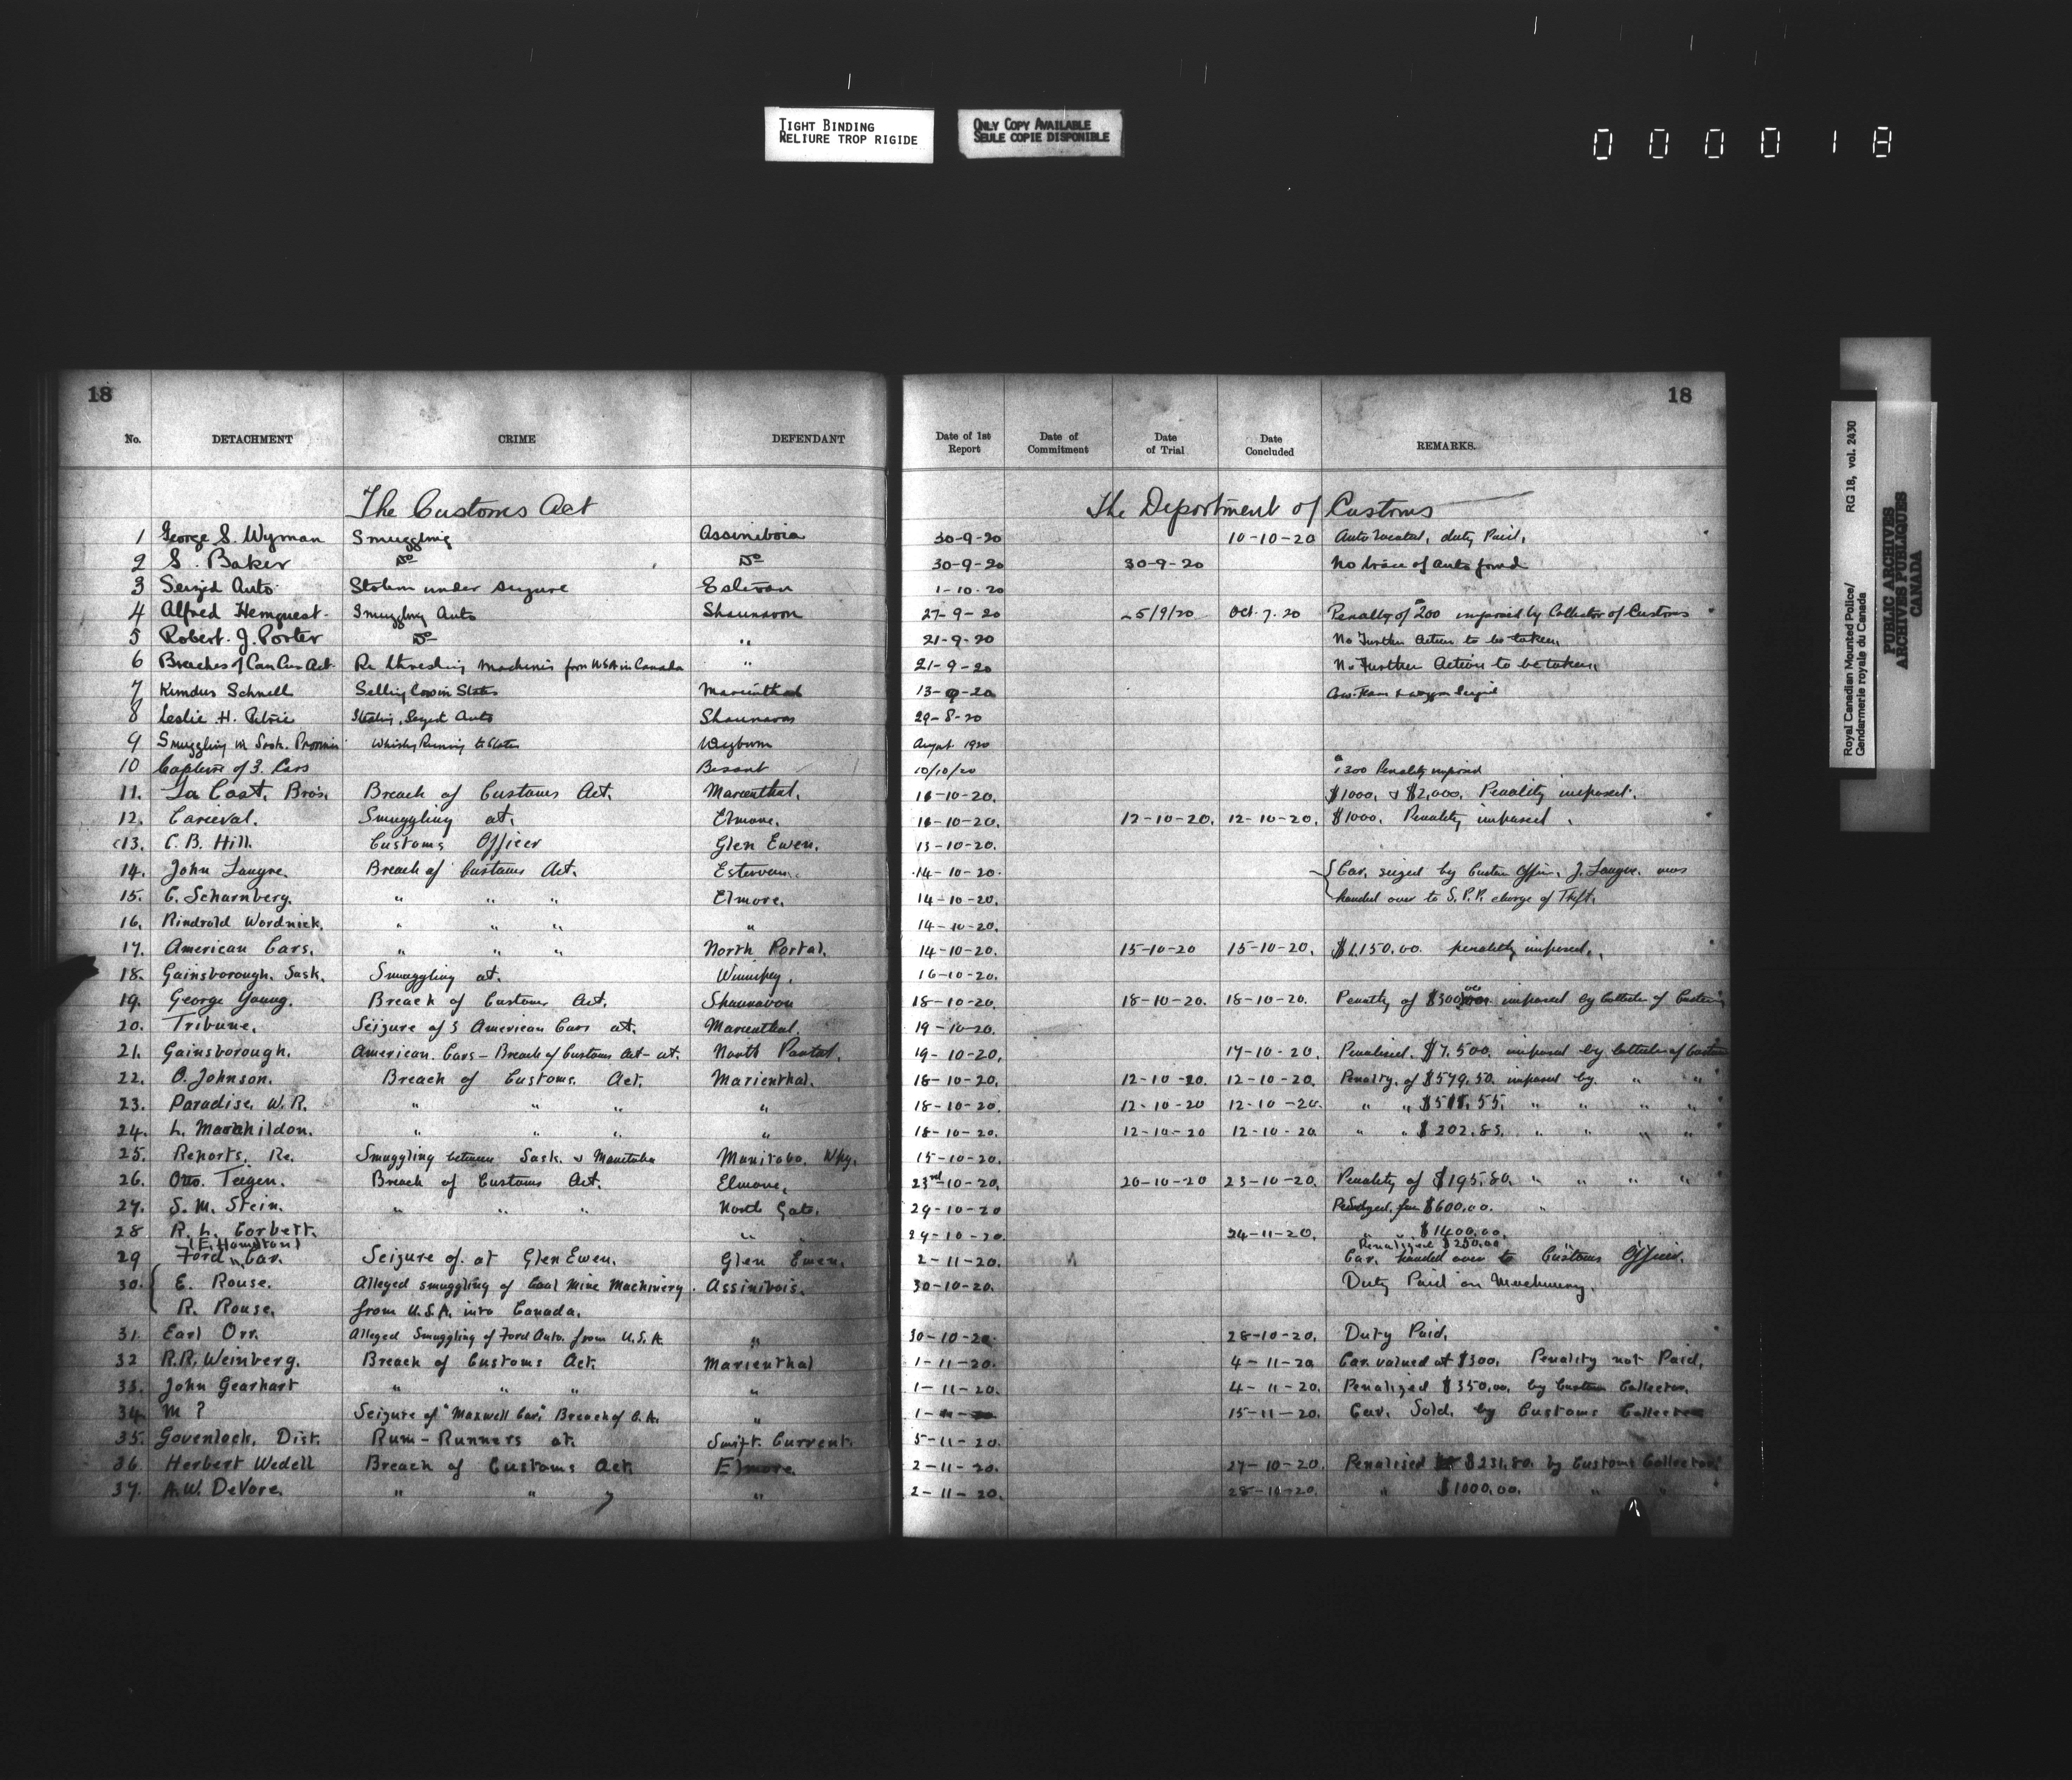 TIGHT BINDING
RELIURE TROP RIGIDE
ONLY COPY AVAILABLE
SEULE COPIE DISPONIBLE
000018
Royal Canadian Mounted Police/ RG 18, vol. 2430
Gendarmerie royale du Canada
PUBLIC ARCHIVES
ARCHIVES PUBLIQUES
CANADA
18 18
No. DETACHMENT CRIME DEFENDANT Date of 1st Report Date of Commitment Date of Trial Date Concluded REMARKS.
The Customs Act The Department of Customs
1 George S. Wyman Smuggling Assiniboia 30-9-20 10-10-20 Auto located, duty Paid.
2 S. Baker Do Do 30-9-20 30-9-20 No trace of auto found
3 Seized Auto Stolen under seizure Estevan 1-10-20
4 Alfred Hemquest Smuggling Auto Shaunavon 27-9-20 5/9/20 Oct. 7. 20 Penalty of $200 imposed by Collector of Customs
5 Robert. J. Porter Do " 21-9-20 No Further Action to be taken.
6 Breaches of Can Cus Act. Re threshing machines from USA in Canada " 21-9-20 No Further Action to be taken.
7 Schnell Selling Cow in States Marienthal 13-9-20 Cow. Team & waggon Seized
8 Leslie H. Petrie Stealing Seized Auto Shaunavon 29-8-20
9 Smuggling in Sask. Province Whisky Running to States Weyburn August 1920
10 Capture of 3. Cars Bisant 10/10/20 $1300 Penalty imposed
11. La Cost, Bros. Breach of Customs Act. Marienthal. 11-10-20. $1000. & $2,000. Penality imposed.
12. Carieval. Smuggling at. Elmore. 11-10-20. 12-10-20. 12-10-20. $1000. Penality imposed.
13. C. B. Hill. Customs Officer Glen Ewen. 13-10-20.
14. John Laugre. Breach of Customs Act. Estervan. 14-10-20. Car. seized by Custom Officer. J. Laugre. was
15. C. Scharnberg. " " " Elmore. 14-10-20. handed over to S.P.P. charge of Theft.
16. Rindrold Wordnick. " " " " 14-10-20.
17. American Cars. " " " North Portal. 14-10-20. 15-10-20 15-10-20. $1,150.00. penality imposed.
18. Gainsborough. Sask. Smuggling at. Winnipeg. 16-10-20.
19. George Young. Breach of Customs Act. Shaunavon 18-10-20. 18-10-20. 18-10-20. Penalty of $300 imposed by Collector of Customs
20. Tribune. Seizure of 3 American Cars at. Marienthal. 19-10-20.
21. Gainsborough. American. Cars - Breach of Customs Act - at. North Portal. 19-10-20. 17-10-20. Penalised. $7,500. imposed by Collector of Customs
22. O. Johnson. Breach of Customs. Act. Marienthal. 18-10-20. 12-10-20. 12-10-20. Penalty. of $579.50. imposed by. " "
23. Paradise. W. R. " " " " 18-10-20. 12-10-20 12-10-20. " " " " " "
24. L. " " " " 18-10-20. 12-10-20 12-10-20. " " $202.85. " " " "
25. Reports. Re. Smuggling between Sask. & Manitoba Manitoba. Wpg. 15-10-20.
26. Otto. Teigen. Breach of Customs Act. Elmore. 23rd-10-20. 20-10-20 23-10-20. Penality of $195.80. " " " "
27. S. M. Stein. " " " North Gate. 29-10-20 $600.00. "
28 R. L. Corbett. " 29-10-20. 24-11-20. " " $1400.00.
(E. Hamilton) Penalized $250.00
29 Ford Car. Seizure of. at Glen Ewen. Glen Ewen. 2-11-20. Car. handed over to Customs Officer.
30. E. Rouse. Alleged smuggling of Coal Mine Machinery. Assiniboia. 30-10-20. Duty Paid on Machinery.
R. Rouse. from U.S.A. into Canada.
31. Earl Orr. Alleged Smuggling of Ford Auto. from U.S.A. " 30-10-20. 28-10-20. Duty Paid.
32 R.R. Weinberg. Breach of Customs Act. Marienthal 1-11-20. 4-11-20 Car. valued at $300. Penality not Paid.
33. John Gearhart " " " " 1-11-20. 4-11-20. Penalized $350.00 by Customs Collector.
34. M ? Seizure of "Maxwell Car" Breach of C.A. " 1-11-20 15-11-20. Car. Sold. by Customs Collector
35. Govenlock, Dist. Rum-Runners at. Swift. Current. 5-11-20.
36 Herbert Wedell Breach of Customs Act. Elmore. 2-11-20. 27-10-20. Penalised $231.80. by Customs Collector.
37. A.W. DeVore. " " " " 2-11-20. 28-10-20. " $1000.00. " "